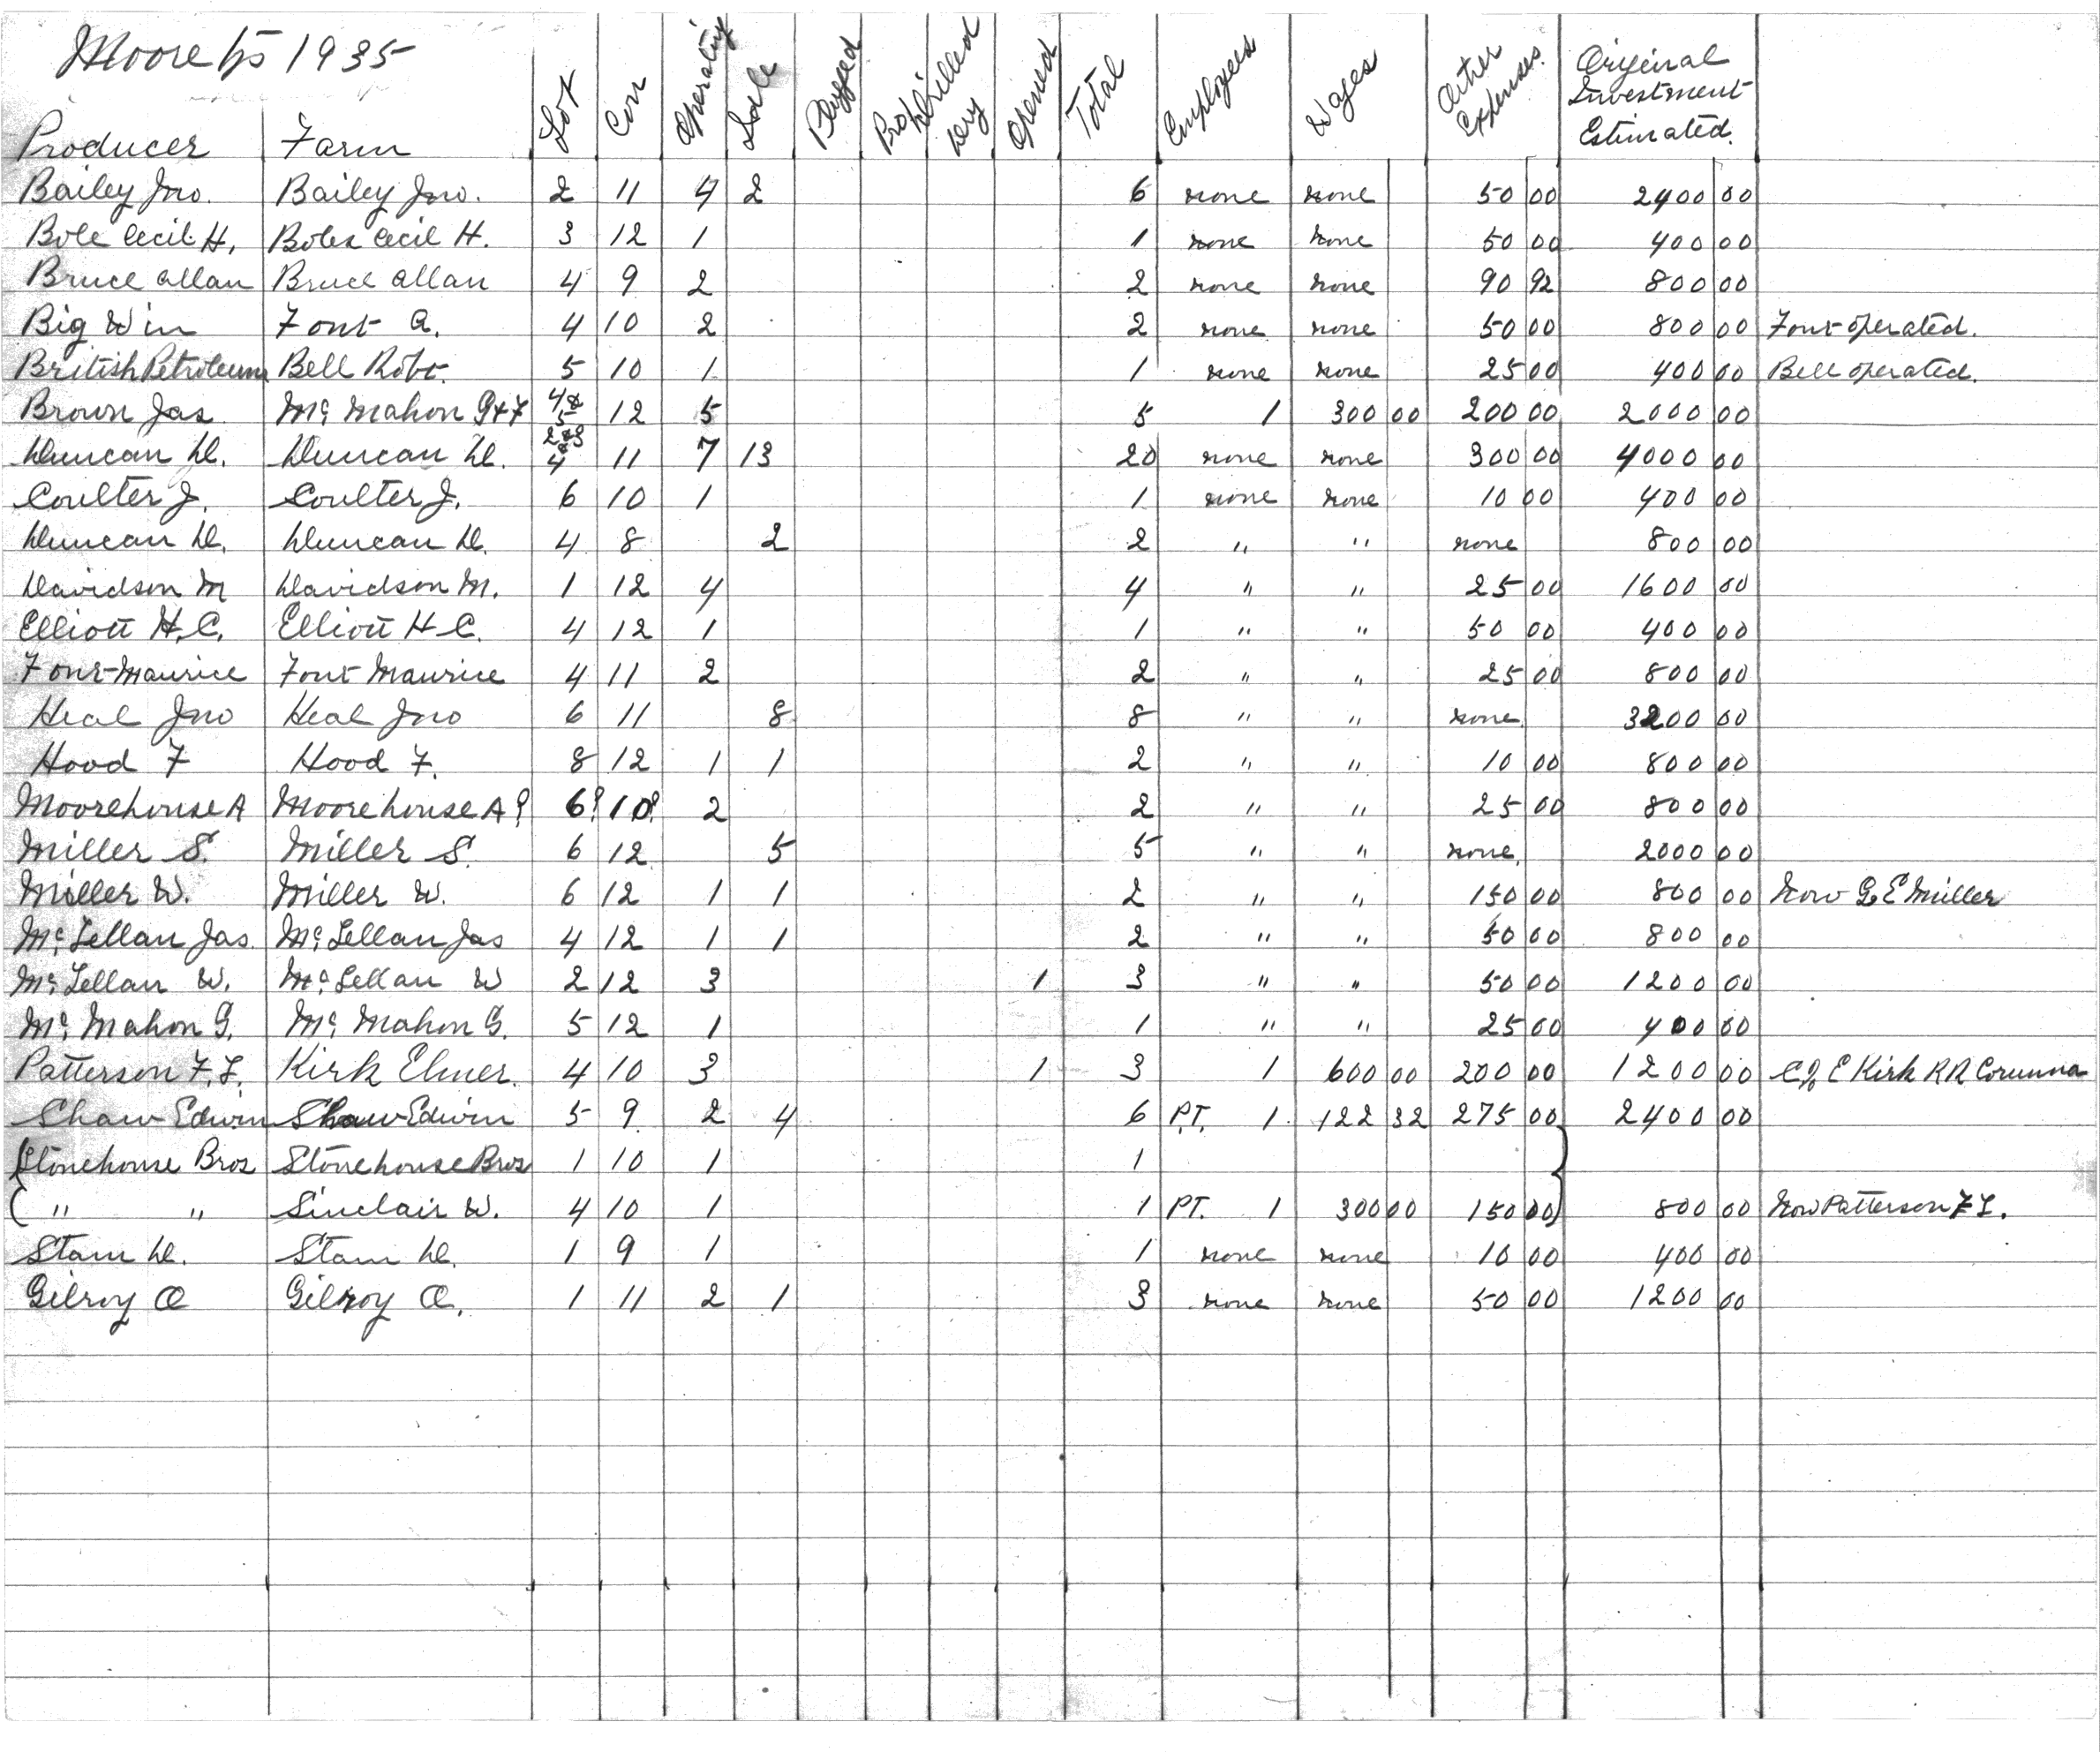 Moore tp 1935
Producer Farm Lot Con Operating Idle Plugged Pro Drilled Dry Opened Total Employees Wages Other Expenses. Original Investment Estimated.
Bailey Jno. Bailey Jno. 2 11 4 2 6 none none 50 00 2400 00
Bole Cecil H. Boles Cecil H. 3 12 1 1 none none 50 00 400 00
Bruce Allan Bruce Allan 4 9 2 2 none none 90 92 800 00
Big Win Font A. 4 10 2 2 none none 50 00 800 00 Font operated.
British Petroleum Bell Robt. 5 10 1 1 none none 25 00 400 00 Bell operated.
Brown Jas Mc Mahon G+F 4 & 5 12 5 5 1 300 00 200 00 2000 00
Duncan D. Duncan D. 2 & 3 & 4 11 7 13 20 none none 300 00 4000 00
Coulter J. Coulter J. 6 10 1 1 none none 10 00 400 00
Duncan D. Duncan D. 4 8 2 2 " " none 800 00
Davidson M Davidson M. 1 12 4 4 " " 25 00 1600 00
Elliott H.C. Elliott H C. 4 12 1 1 " " 50 00 400 00
Font Maurice Font Maurice 4 11 2 2 " " 25 00 800 00
Heal Jno Heal Jno 6 11 8 8 " " none 3200 00
Hood F Hood F. 8 12 1 1 2 " " 10 00 800 00
Moorehouse A Moorehouse A? 6? 10? 2 2 " " 25 00 800 00
Miller S. Miller S. 6 12 5 5 " " none 2000 00
Miller W. Miller W. 6 12 1 1 2 " " 150 00 800 00 Now G E Miller
Mc Lellan Jas. Mc Lellan Jas 4 12 1 1 2 " " 50 00 800 00
Mc Lellan W. Mc Lellan W 2 12 3 1 3 " " 50 00 1200 00
Mc Mahon G. Mc Mahon G. 5 12 1 1 " " 25 00 400 00
Patterson F.L. Kirk Elmer. 4 10 3 1 3 1 600 00 200 00 1200 00 c/o E Kirk RR Corunna
Shaw Edwin Shaw Edwin 5 9 2 4 6 P.T. 1 122 32 275 00 2400 00
Stonehouse Bros Stonehouse Bros 1 10 1 1
" " Sinclair W. 4 10 1 1 PT. 1 300 00 150 00 800 00 Now Patterson F L.
Stam D. Stam D. 1 9 1 1 none none 10 00 400 00
Gilroy O Gilroy O. 1 11 2 1 3 none none 50 00 1200 00